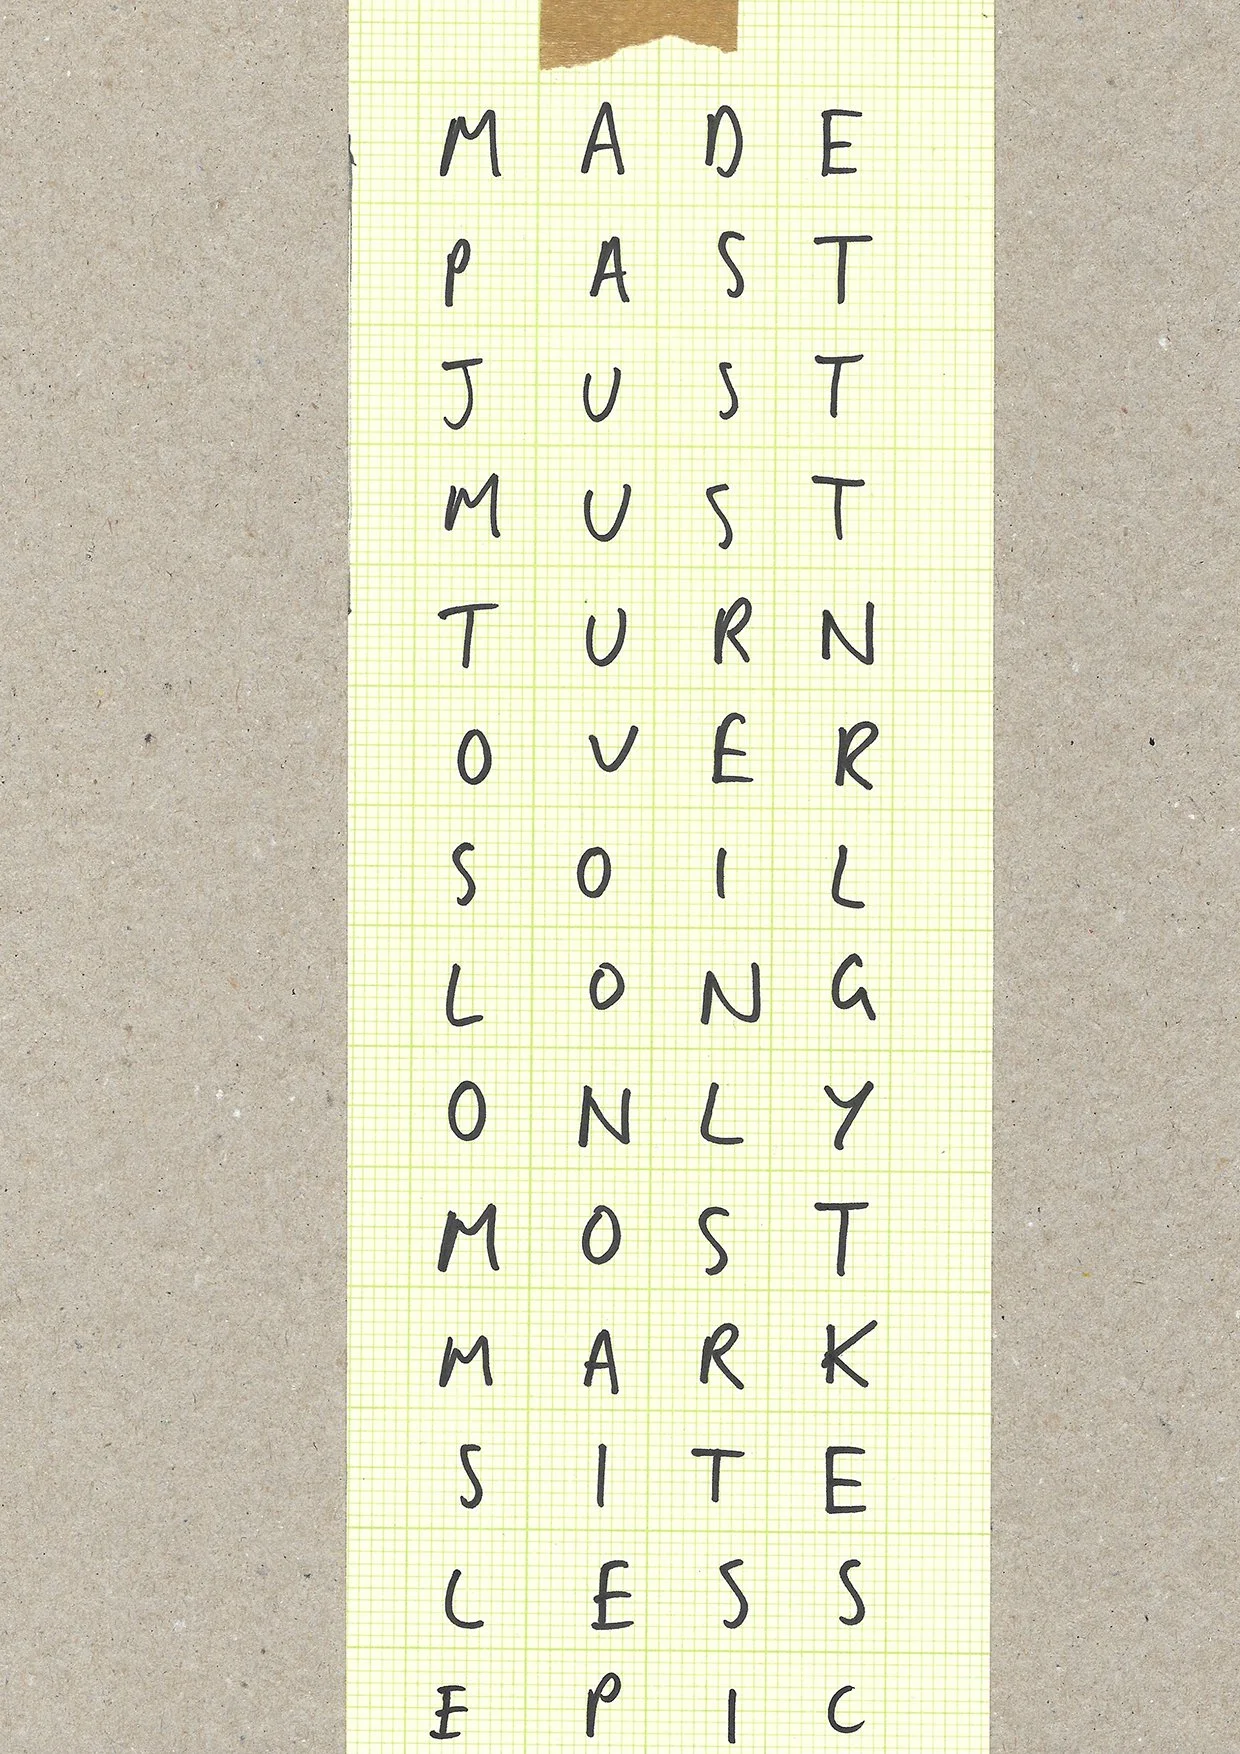 MADE
PAST
JUST
MUST
TURN
OVER
SOIL
LONG
ONLY
MOST
MARK
SITE
LESS
EPIC